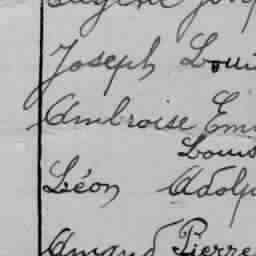 Joseph Loui
Ambroise Em
Louis
Léon Adolp
Amand Pierre